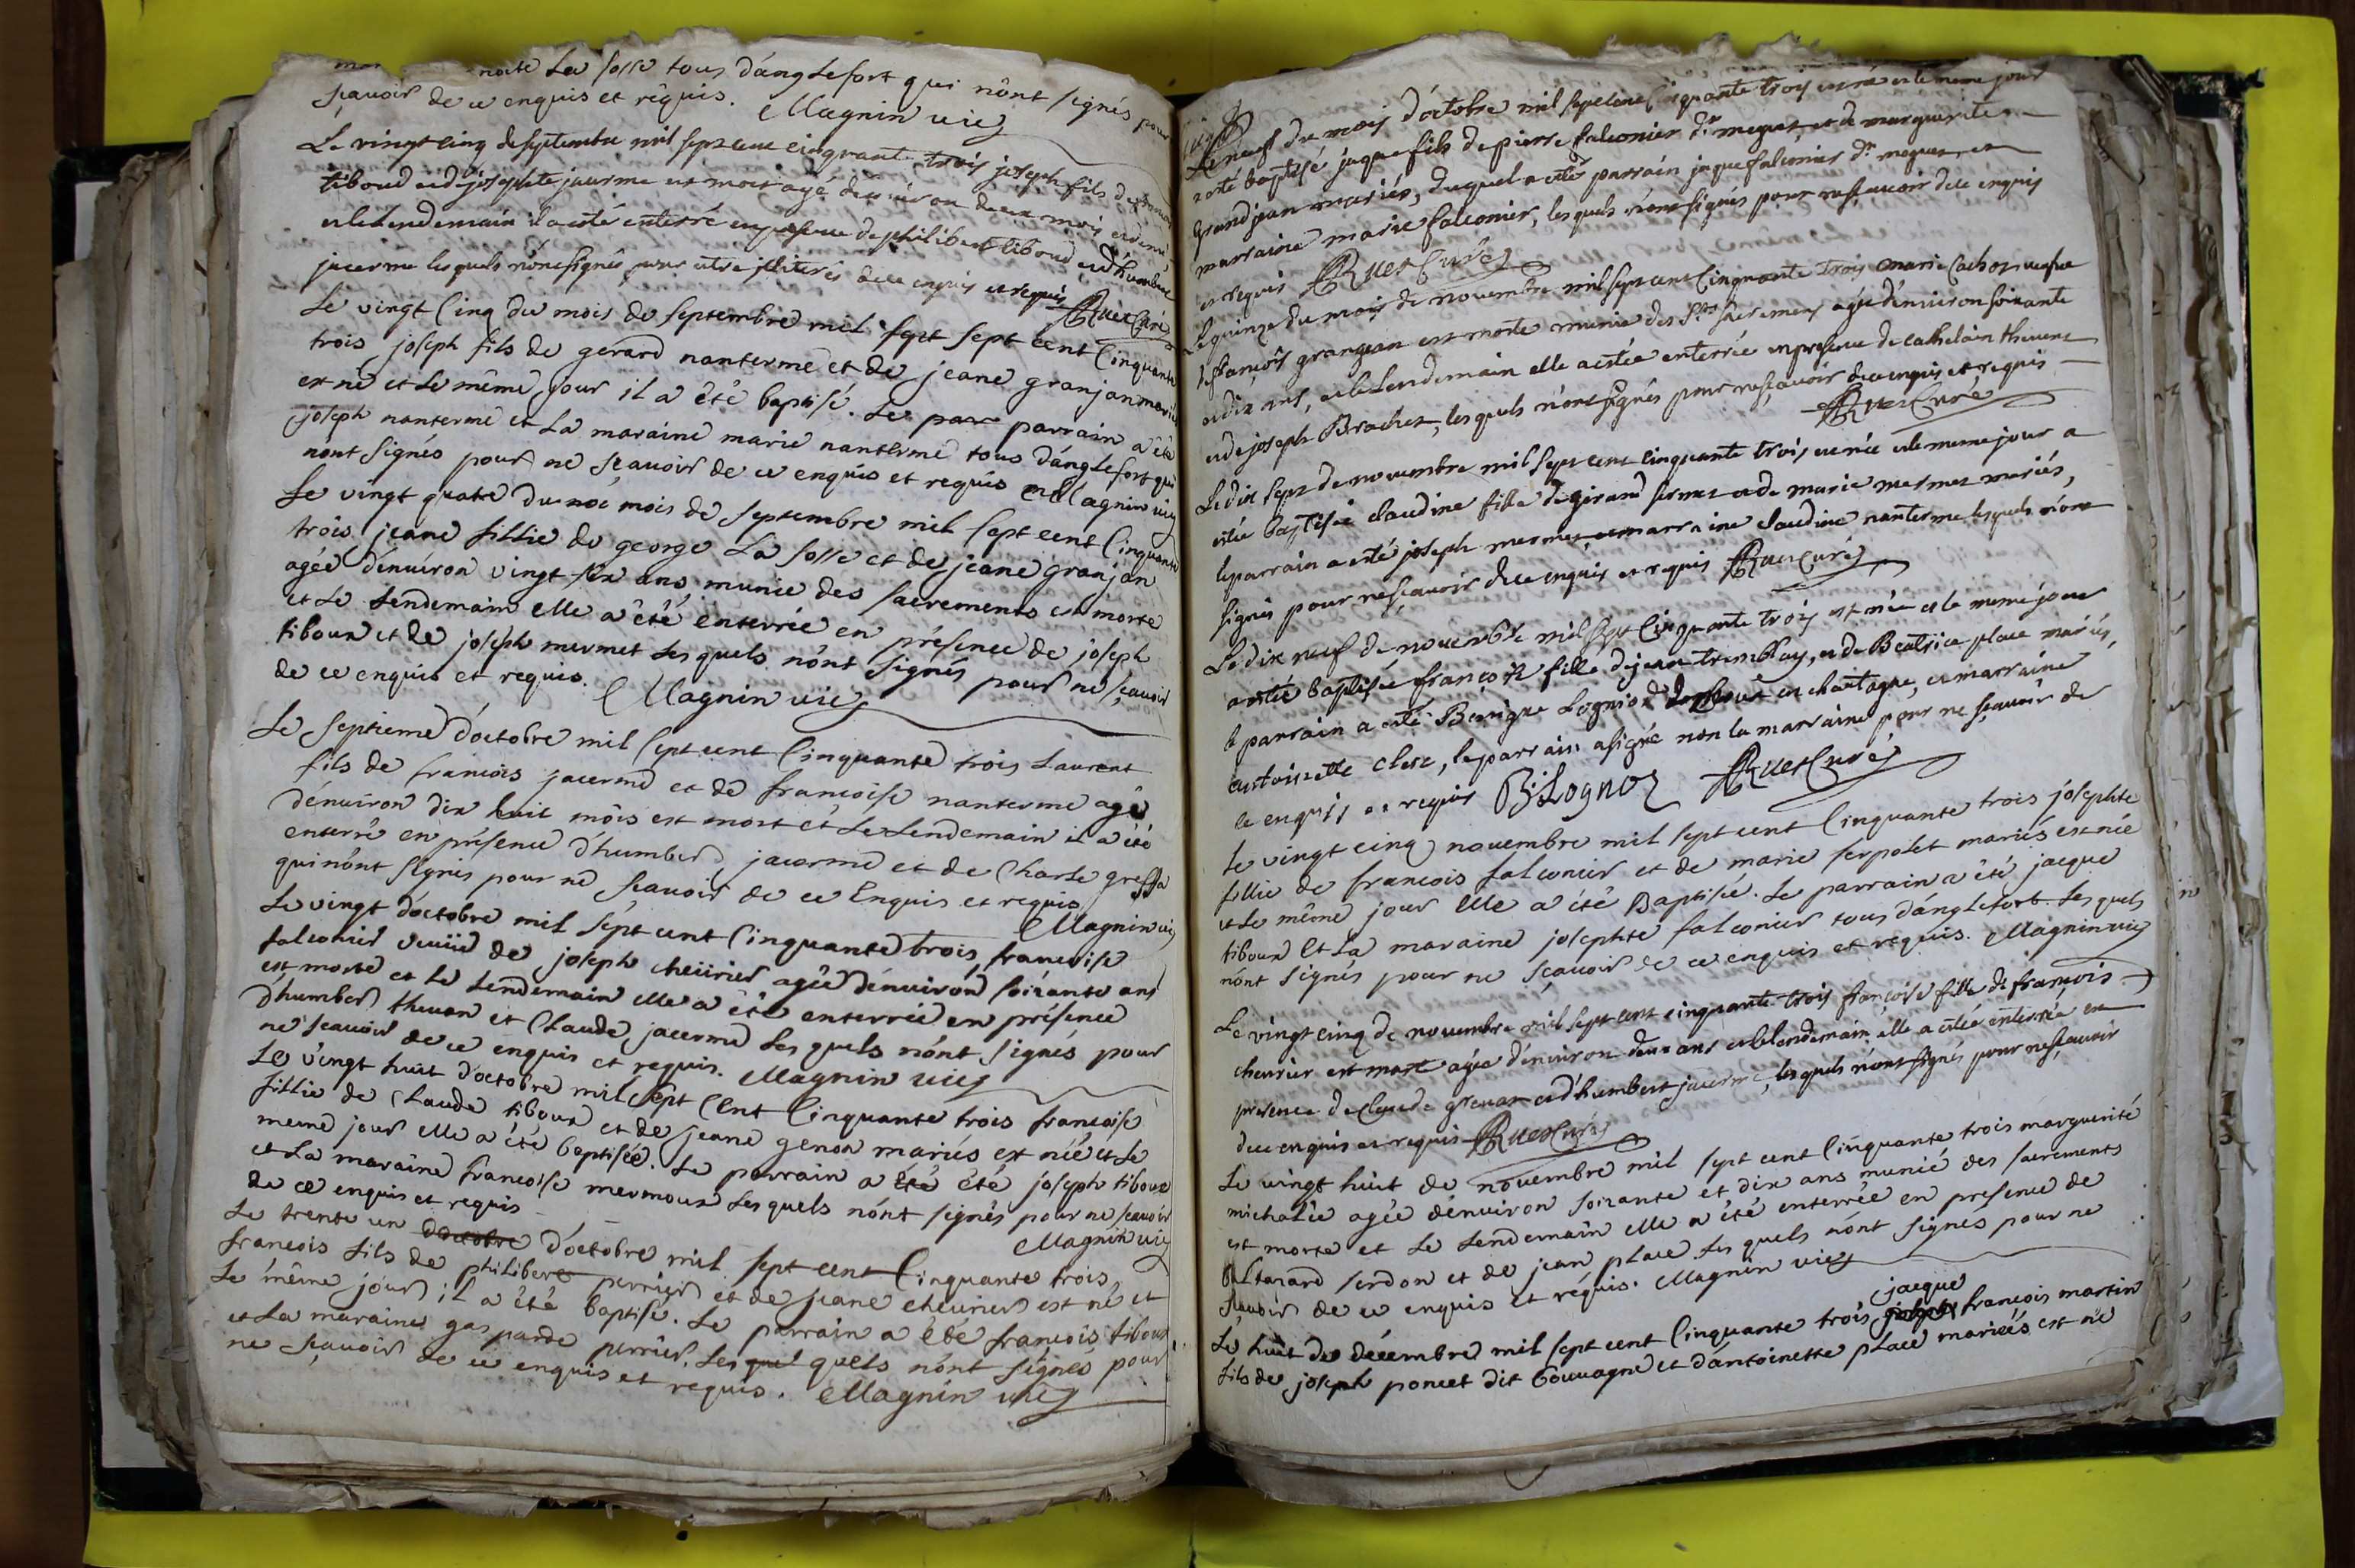 noite La fosse tous d'anglefort qui n'ont signés pour
sçavoir de ce enquis et requis. Magnin vic
Le vingt cinq de septembre mil sept cent cinquante trois joseph fils de francois
tiboud et de josephte jacerme est mort agé d'environ deux mois et demi,
et le lendemain il a esté enterré en presence de philibert tiboud et d'humbert
jacerme les quels n'ont signés pour etre illiterés de ce enquis et requis Ruet Curé
Le vingt Cinq du mois de septembre mil sept sept cent Cinquante
trois joseph fils de gerard nanterme et de jeane granjan mariés
est né et le même jour il a été baptisé. Le par parrain a été
joseph nanterme et La maraine marie nanterme tous d'anglefort qui
n'ont signés pour ne sçavoir de ce enquis et requis Magnin vic
Le vingt quatre du moi mois de septembre mil sept cent Cinquante
trois jeane fillie de george La fosse et de jeane granjan
agée d'environ vingt six ans, munie des sacrements est morte
et Le Lendemain elle a été enterrée en présence de joseph
tiboux et de joseph mermet Les quels n'ont signés pour ne sçavoir
de ce enquis et requis. Magnin vic
Le septieme d'octobre mil sept cent Cinquante trois Laurent
fils de francois jacerme et de francoise nanterme agé
d'environ dix huit mois est mort et Le Lendemain il a été
enterré en présence d'humber jacerme et de Charle greffa
qui n'ont signés pour ne sçavoir de ce Enquis et requis
Magnin vic
Le vingt d'octobre mil sept cent Cinquante trois francoise
falconier veuve de joseph cheurier agée d'environ soixante ans
est morte et Le Lendemain elle a été enterrée en présence
d'humber thevan et Claude jacerme Les quels n'ont signés pour
ne sçavoir de ce enquis et requis. Magnin vic
Le vingt huit d'octobre mil sept Cent Cinquante trois francoise
fillie de Claude tiboux et de jeane genon mariés est née et Le
meme jour elle a été baptisée. Le parrain a été été joseph tiboux
et La maraine francoise mermoux Les quels n'ont signés pour ne sçavoir
de ce enquis et requis
Magnin vic
Le trente un d'octobre d'octobre mil sept cent Cinquante trois
francois fils de philibert perrier et de jeane cheurier est né et
Le même jour il a été baptisé. Le parrain a été francois tiboux
et La maraine gasparde perrier. Les quel quels n'ont signés pour
ne sçavoir de ce enquis et requis. Magnin vic
Le neuf du mois d'octobre mil sept cent Cinquante trois est né et le meme jour
a eté baptisé jaque fils de pierre falconier dt meguet et de marguerite
grandjean mariés, duquel a eté parrain jaque falconier dt meguet, et
marraine marie falconier, lesquels n'ont signés pour ne sçavoir de ce enquis
et requis Ruet Curé
Le quinze du mois de novembre mil sept cent Cinquante trois marie Cachoz veufve
de francois grangean est morte munie des Sts Sacremens agée d'environ soixante
et dix ans, et le lendemain elle a estée enterrée en presence de cathelain thevene
et de joseph Brachet, lesquels n'ont signés pour ne sçavoir de ce enquis et requis
Ruet Curé
Le dix sept de novembre mil sept cent cinquante trois est née et le meme jour a
estée baptisée claudine fille de girard sermet et de marie mermet mariés,
le parrain a esté joseph mermet et marraine claudine nanterme lesquels n'ont
signés pour ne sçavoir de ce enquis et requis Ruet Curé
Le dix neuf de novembre mil sept Cinquante trois est née et le meme jour
a estée baptisée francoise fille de jean tremblay, et de Beatrice place mariés,
le parrain a esté Benigne Lognioz en chautagne, et marraine
antoinette clerc, le parrain a signé non la marraine pour ne sçavoir de
ce enquis et requis B: Lognoz Ruet Curé
Le vingt cinq novembre mil sept cent Cinquante trois josephte
fillie de francois falconier et de marie serpolet mariés est née
et Le même jour Elle a été Baptisée. Le parrain a été jacque
tiboux Et La maraine josephte falconier tous d'anglefort. Les quels
n'ont signés pour ne sçavoir de ce enquis et requis. Magnin vic
Le vingt cinq de novembre mil sept cent cinquante trois francoise fille de francois
cheurier est mort agée d'environ deux ans et le lendemain elle a estée enterrée en
presence de claude grenan et d'humbert jacerme, lesquels n'ont signés pour ne sçavoir
de ce enquis et requis Ruet Curé
Le vingt huit de novembre mil sept cent Cinquante trois marguerite
michalée agée d'environ soixante et dix ans munie des sacrements
est morte et Le Lendemain elle a été enterrée en presence de
Baltazard serdon et de jean place. Les quels n'ont signés pour ne
sçavoir de ce enquis et requis. Magnin vic
jacque
Le huit de décembre mil sept cent Cinquante trois joseph francois martin
fils de joseph poncet dit bouvagne et d'antoinette place mariés est né